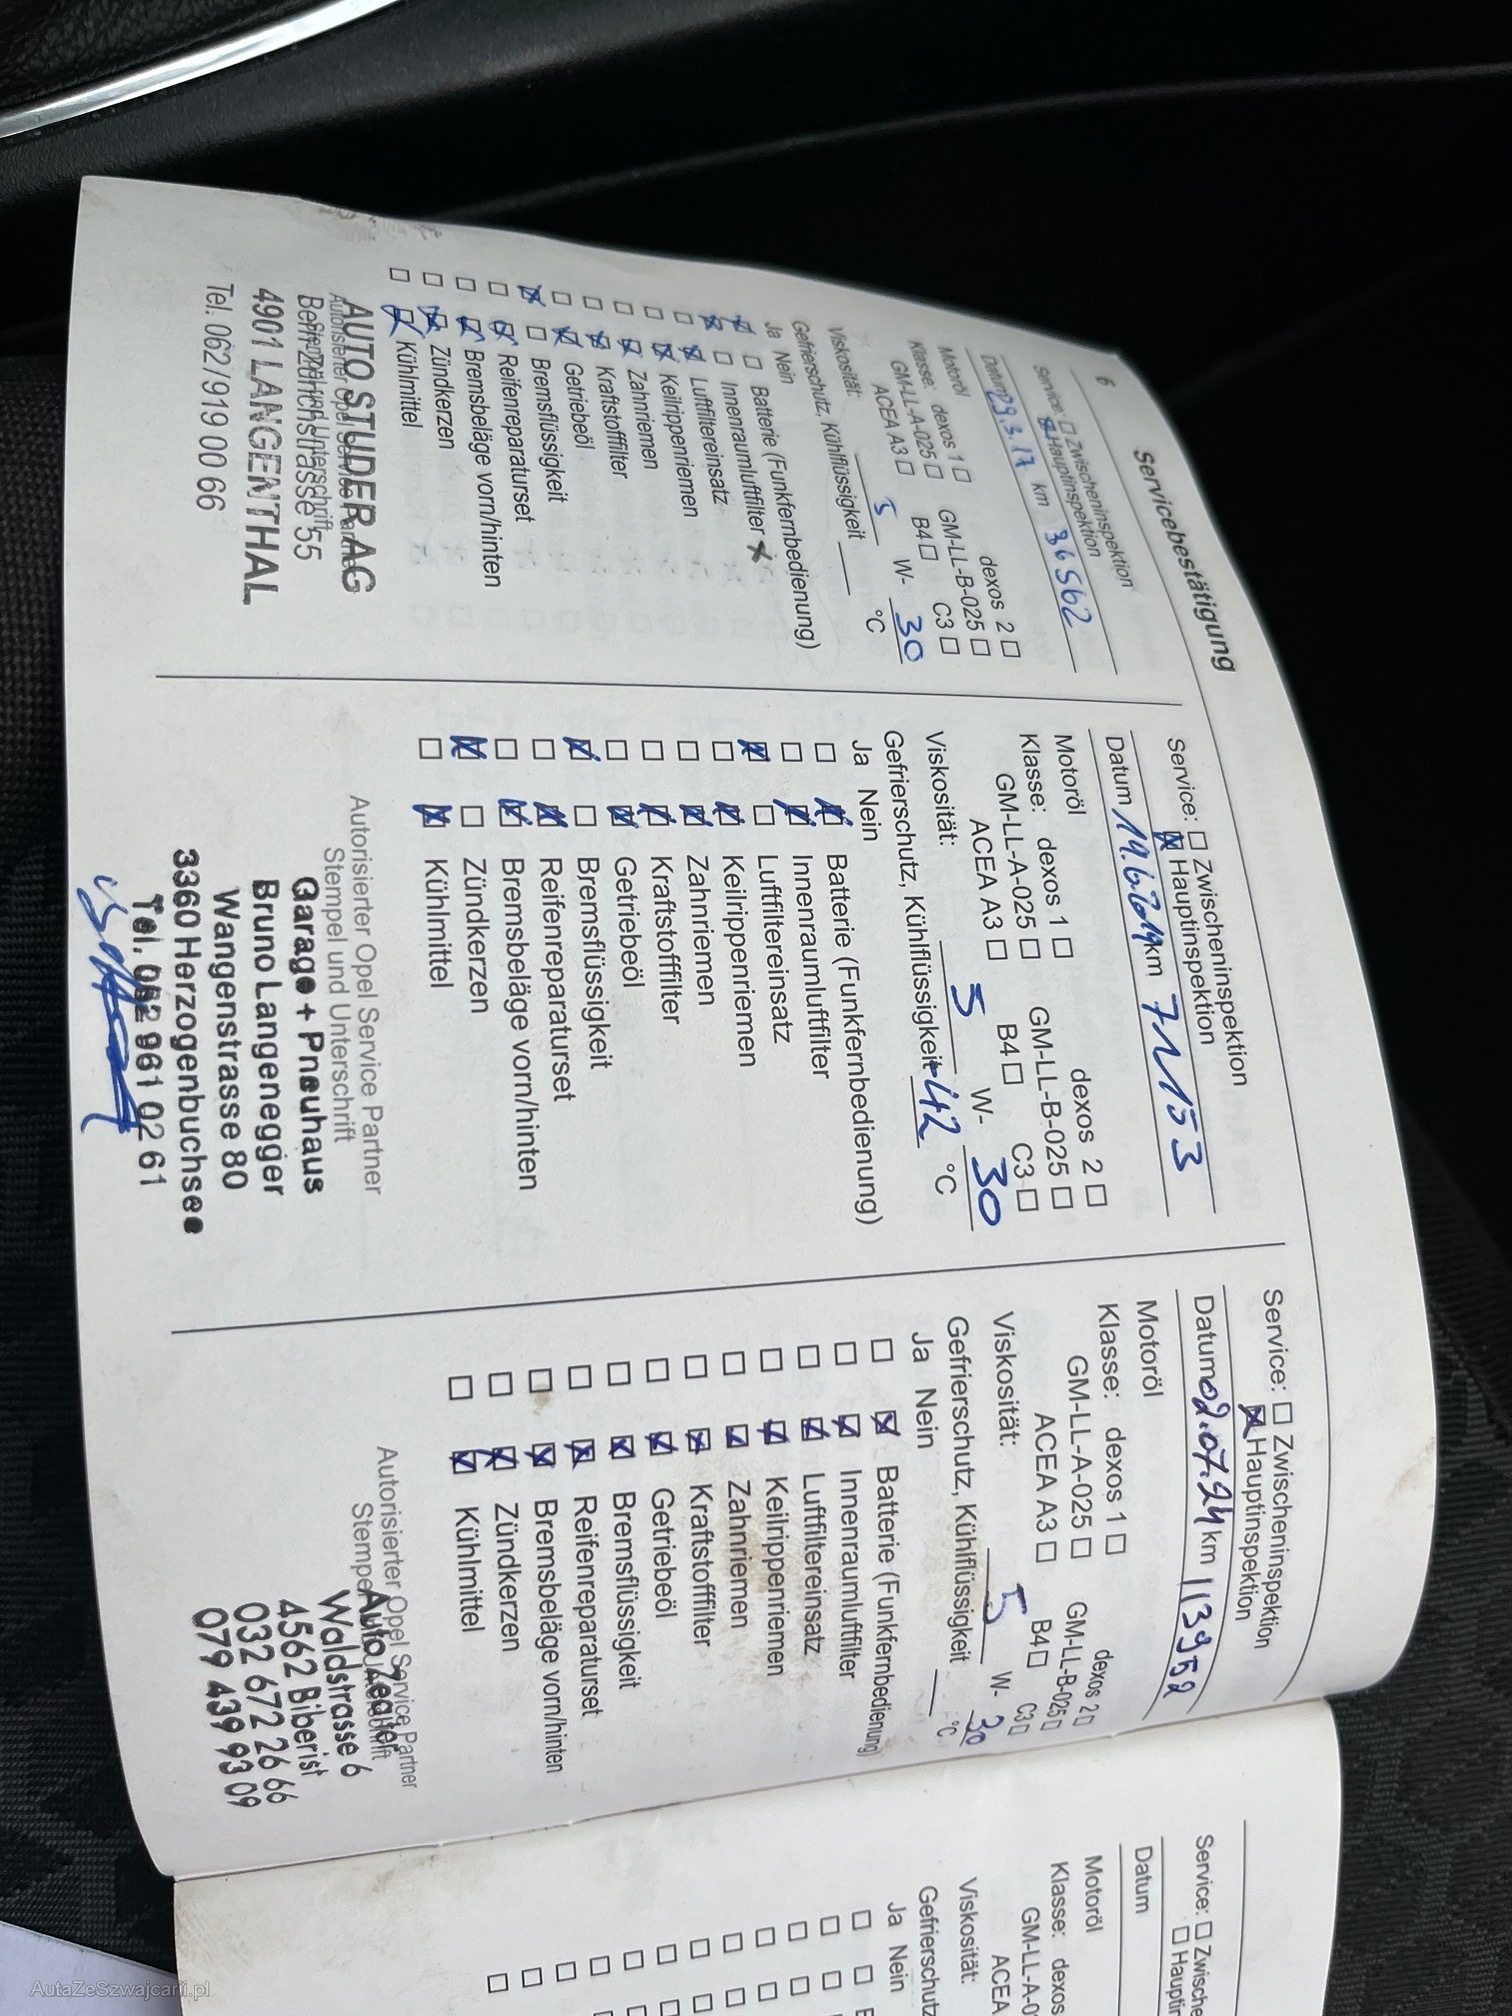 6
Servicebestätigung
Service: Zwischeninspektion
Hauptinspektion
Datum 29.3.17 km 36562
Motoröl
Klasse: dexos 1 dexos 2
GM-LL-A-025 GM-LL-B-025
ACEA A3 B4 C3
Viskosität: 5 W- 30
Gefrierschutz, Kühlflüssigkeit °C
Ja Nein
Batterie (Funkfernbedienung)
Innenraumluftfilter x
Luftfiltereinsatz
Keilrippenriemen
Zahnriemen
Kraftstofffilter
Getriebeöl
Bremsflüssigkeit
Reifenreparaturset
Bremsbeläge vorn/hinten
Zündkerzen
Kühlmittel
Autorisierter Opel Service Partner
Stempel und Unterschrift
AUTO STUDER AG
Bern-Zürichstrasse 55
4901 LANGENTHAL
Tel. 062/919 00 66
Service: Zwischeninspektion
Hauptinspektion
Datum 19.6.2019 km 71153
Motoröl
Klasse: dexos 1 dexos 2
GM-LL-A-025 GM-LL-B-025
ACEA A3 B4 C3
Viskosität: 5 W- 30
Gefrierschutz, Kühlflüssigkeit -42 °C
Ja Nein
Batterie (Funkfernbedienung)
Innenraumluftfilter
Luftfiltereinsatz
Keilrippenriemen
Zahnriemen
Kraftstofffilter
Getriebeöl
Bremsflüssigkeit
Reifenreparaturset
Bremsbeläge vorn/hinten
Zündkerzen
Kühlmittel
Autorisierter Opel Service Partner
Stempel und Unterschrift
Garage + Pneuhaus
Bruno Langenegger
Wangenstrasse 80
3360 Herzogenbuchsee
Tel. 062 961 02 61
Service: Zwischeninspektion
Hauptinspektion
Datum 02.07.24 km 113952
Motoröl
Klasse: dexos 1 dexos 2
GM-LL-A-025 GM-LL-B-025
ACEA A3 B4 C3
Viskosität: 5 W- 30
Gefrierschutz, Kühlflüssigkeit °C
Ja Nein
Batterie (Funkfernbedienung)
Innenraumluftfilter
Luftfiltereinsatz
Keilrippenriemen
Zahnriemen
Kraftstofffilter
Getriebeöl
Bremsflüssigkeit
Reifenreparaturset
Bremsbeläge vorn/hinten
Zündkerzen
Kühlmittel
Autorisierter Opel Service Partner
Auto
Waldstrasse 6
4562 Biberist
032 672 26 66
079 439 93 09
Service: Zwische
Hauptin
Datum
Motoröl
Klasse: dexos
GM-LL-A-0
ACEA
Viskosität:
Gefrierschutz
Ja Nein
AutaZeSzwajcarii.pl